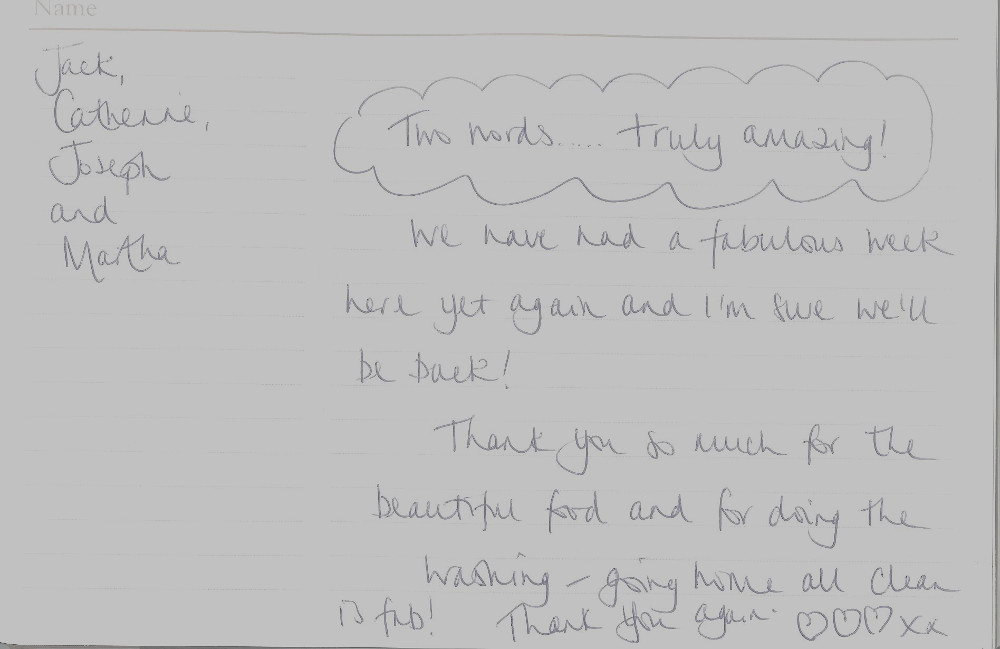 Name
Jack,
Catherine,
Joseph
and
Martha
Two words..... truly amazing!
We have had a fabulous week
here yet again and I'm sure we'll
be back!
Thank you so much for the
beautiful food and for doing the
washing – going home all clean
is fab! Thank you again. ♡♡♡xx